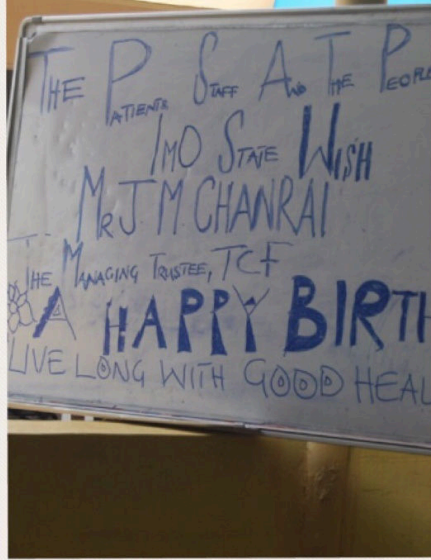 THE PATIENTS STAFF AND THE PEOPLE
IMO STATE WISH
MR J. M. CHANRAI
THE MANAGING TRUSTEE, TCF
A HAPPY BIRTH
LIVE LONG WITH GOOD HEAL